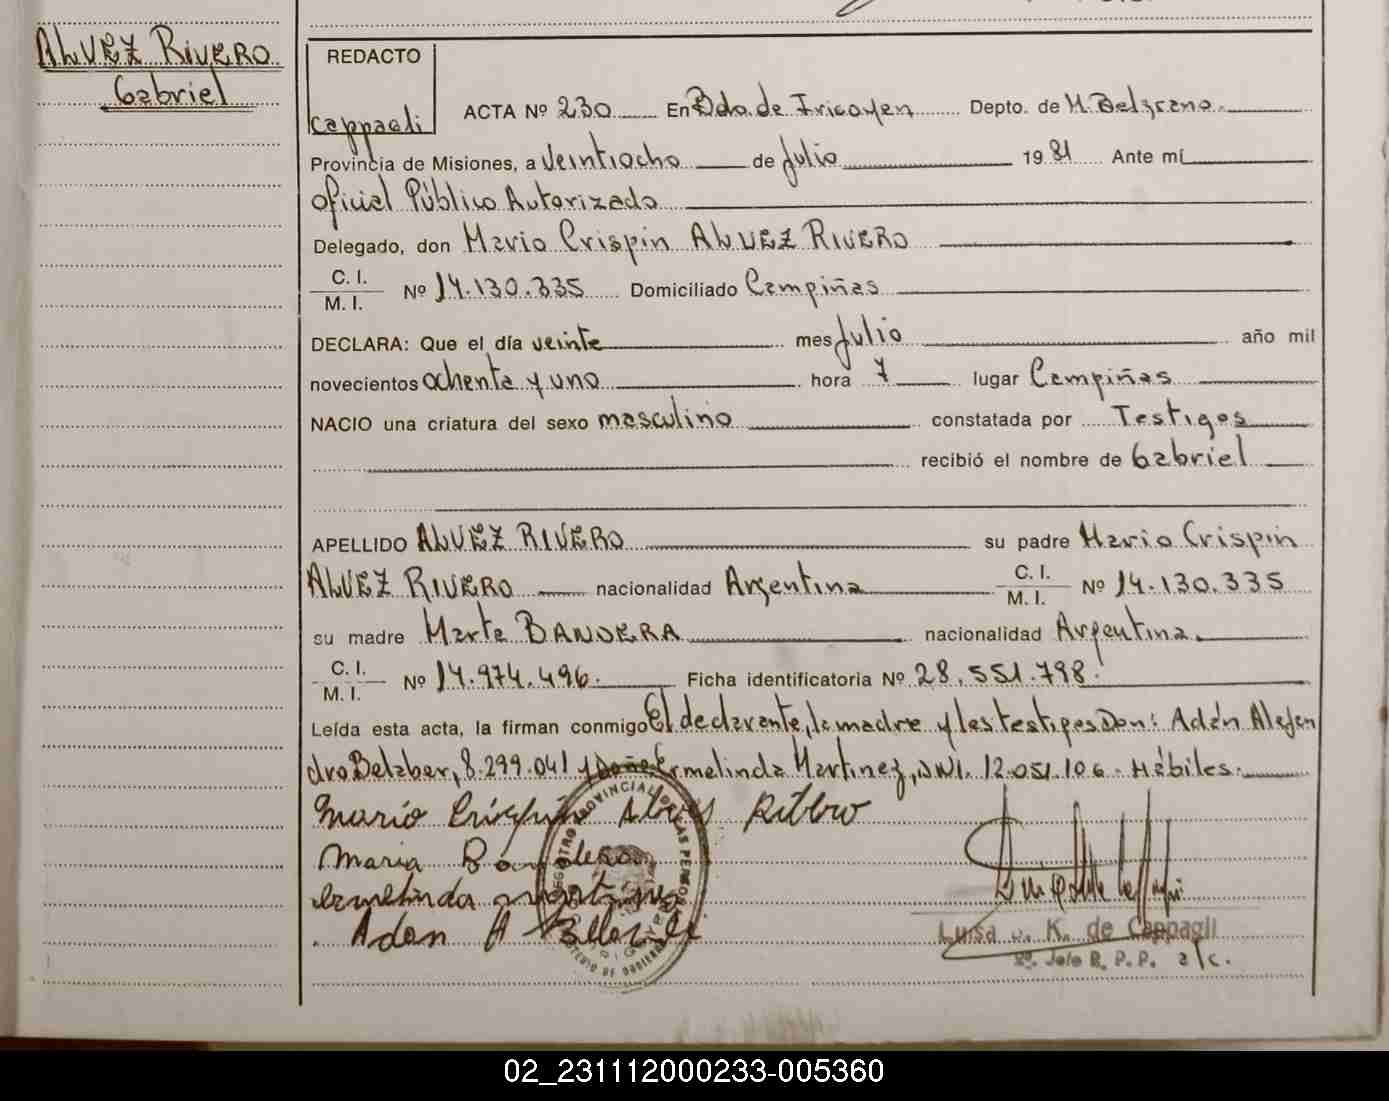 ALVEZ RIVERO
Gabriel
REDACTO
Cappagli
ACTA Nº 230 En Bdo. de Irigoyen Depto. de M. Belgrano
Provincia de Misiones, a veintiocho de Julio 19 81 Ante mí
Oficial Público Autorizado
Delegado, don Mario Crispin ALVEZ RIVERO
C. I.
M. I. Nº 14.130.335 Domiciliado Campiñas
DECLARA: Que el día veinte mes Julio año mil
novecientos ochenta y uno hora 7 lugar Campiñas
NACIO una criatura del sexo masculino constatada por Testigos
recibió el nombre de Gabriel
APELLIDO ALVEZ RIVERO su padre Mario Crispin
ALVEZ RIVERO nacionalidad Argentina C. I. M. I. Nº 14.130.335
su madre Marta BANDERA nacionalidad Argentina.
C. I.
M. I. Nº 14.974.496. Ficha identificatoria Nº 28.551.798.
Leída esta acta, la firman conmigo El declarante, la madre y los testigos Don: Adán Alejan
dro Belzber, 8.299.041 y Doña Ermelinda Martinez, DNI. 12.051.106. Hábiles.
Mario Crispin Alvez Rivero
Maria
Ermelinda
Adan A
REGISTRO PROVINCIAL DE LAS PERSONAS
Luisa K. de Cappagli
Jefe R. P. P. a/c.
02_231112000233-005360